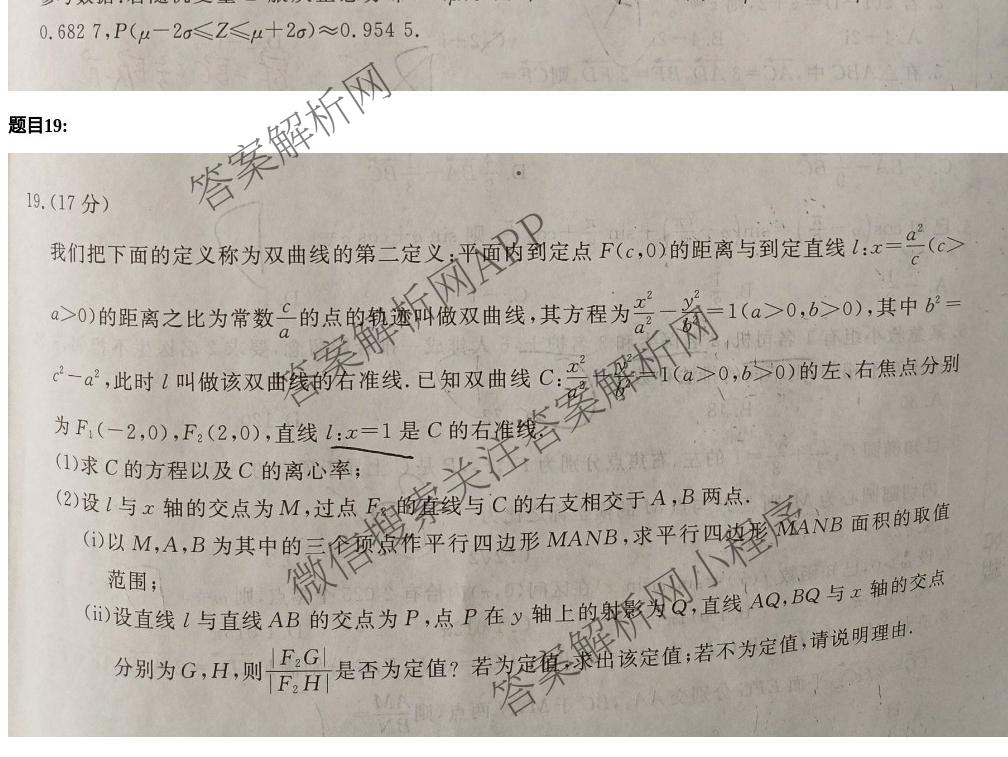 0.682 7,P(μ-2σ≤Z≤μ+2σ)≈0.954 5.
题目19:
19.(17分)
我们把下面的定义称为双曲线的第二定义:平面内到定点 F(c,0)的距离与到定直线 l:x=a²/c(c>
a>0)的距离之比为常数c/a的点的轨迹叫做双曲线,其方程为x²/a²-y²/b²=1(a>0,b>0),其中 b²=
c²-a²,此时 l 叫做该双曲线的右准线.已知双曲线 C:x²/a²-y²/b²=1(a>0,b>0)的左、右焦点分别
为 F₁(-2,0),F₂(2,0),直线 l:x=1 是 C 的右准线.
(1)求 C 的方程以及 C 的离心率;
(2)设 l 与 x 轴的交点为 M,过点 F₂ 的直线与 C 的右支相交于 A,B 两点.
(i)以 M,A,B 为其中的三个顶点作平行四边形 MANB,求平行四边形 MANB 面积的取值
范围;
(ii)设直线 l 与直线 AB 的交点为 P,点 P 在 y 轴上的射影为 Q,直线 AQ,BQ 与 x 轴的交点
分别为 G,H,则|F₂G|/|F₂H|是否为定值?若为定值,求出该定值;若不为定值,请说明理由.
答案解析网
答案解析网APP
微信搜索关注答案解析网
答案解析网小程序